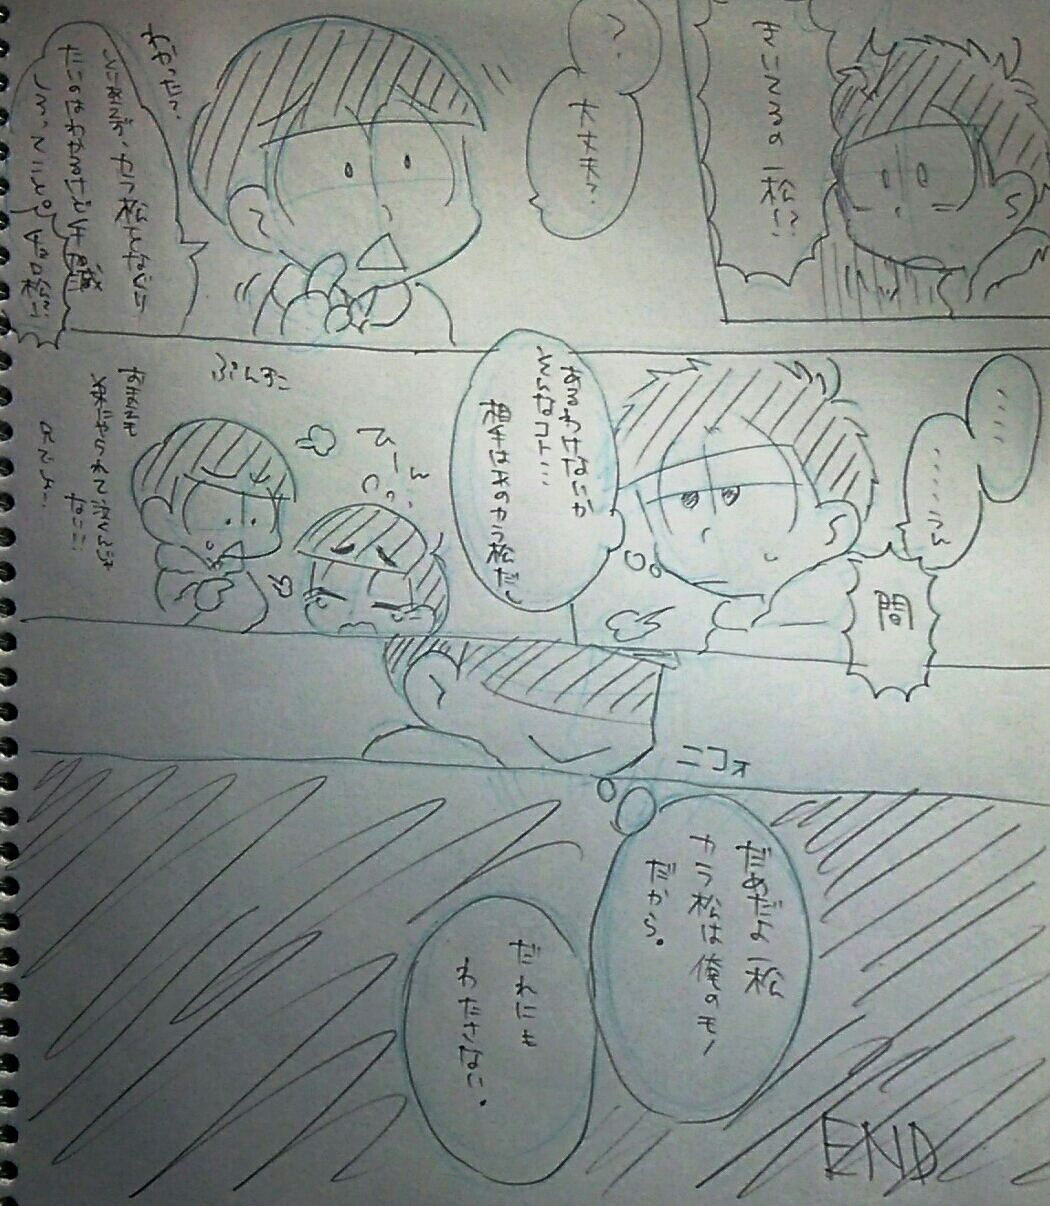 きいてるの一松!?
?
大丈夫?
わかった?
カラ松となぐり
たいのはわかるけど
しろってこと。
チョロ松!!
……
……うん
間
あるわけないか
そんなコト…
相手はあのカラ松だし
ひーん
ぷんすこ
おまえも
泣くんじゃ
ない!!
兄でしょー
ニコォ
だめだよ一松
カラ松は俺のモノ
だから。
だれにも
わたさない。
END